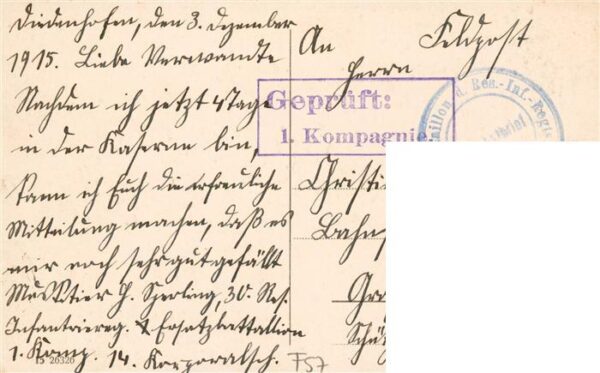 Diedenhofen, den 3. Dezember
1915. Liebe Verwandte
Nachdem ich jetzt 4 Tage
in der Kaserne bin,
kann ich Euch die erfreuliche
Mitteilung machen, daß es
mir noch sehr gut gefällt
Musktier J. Sperling, 30. Res.
Infantriereg. Ersatzbattallion
1. Komp. 14. Korporalsch.
15 26326
F57
An Feldpost
Herrn
Geprüft:
1. Kompagnie
aillon d. Res.-Inf.-Regt
brief
Christi
Bahn
Gro
Schü